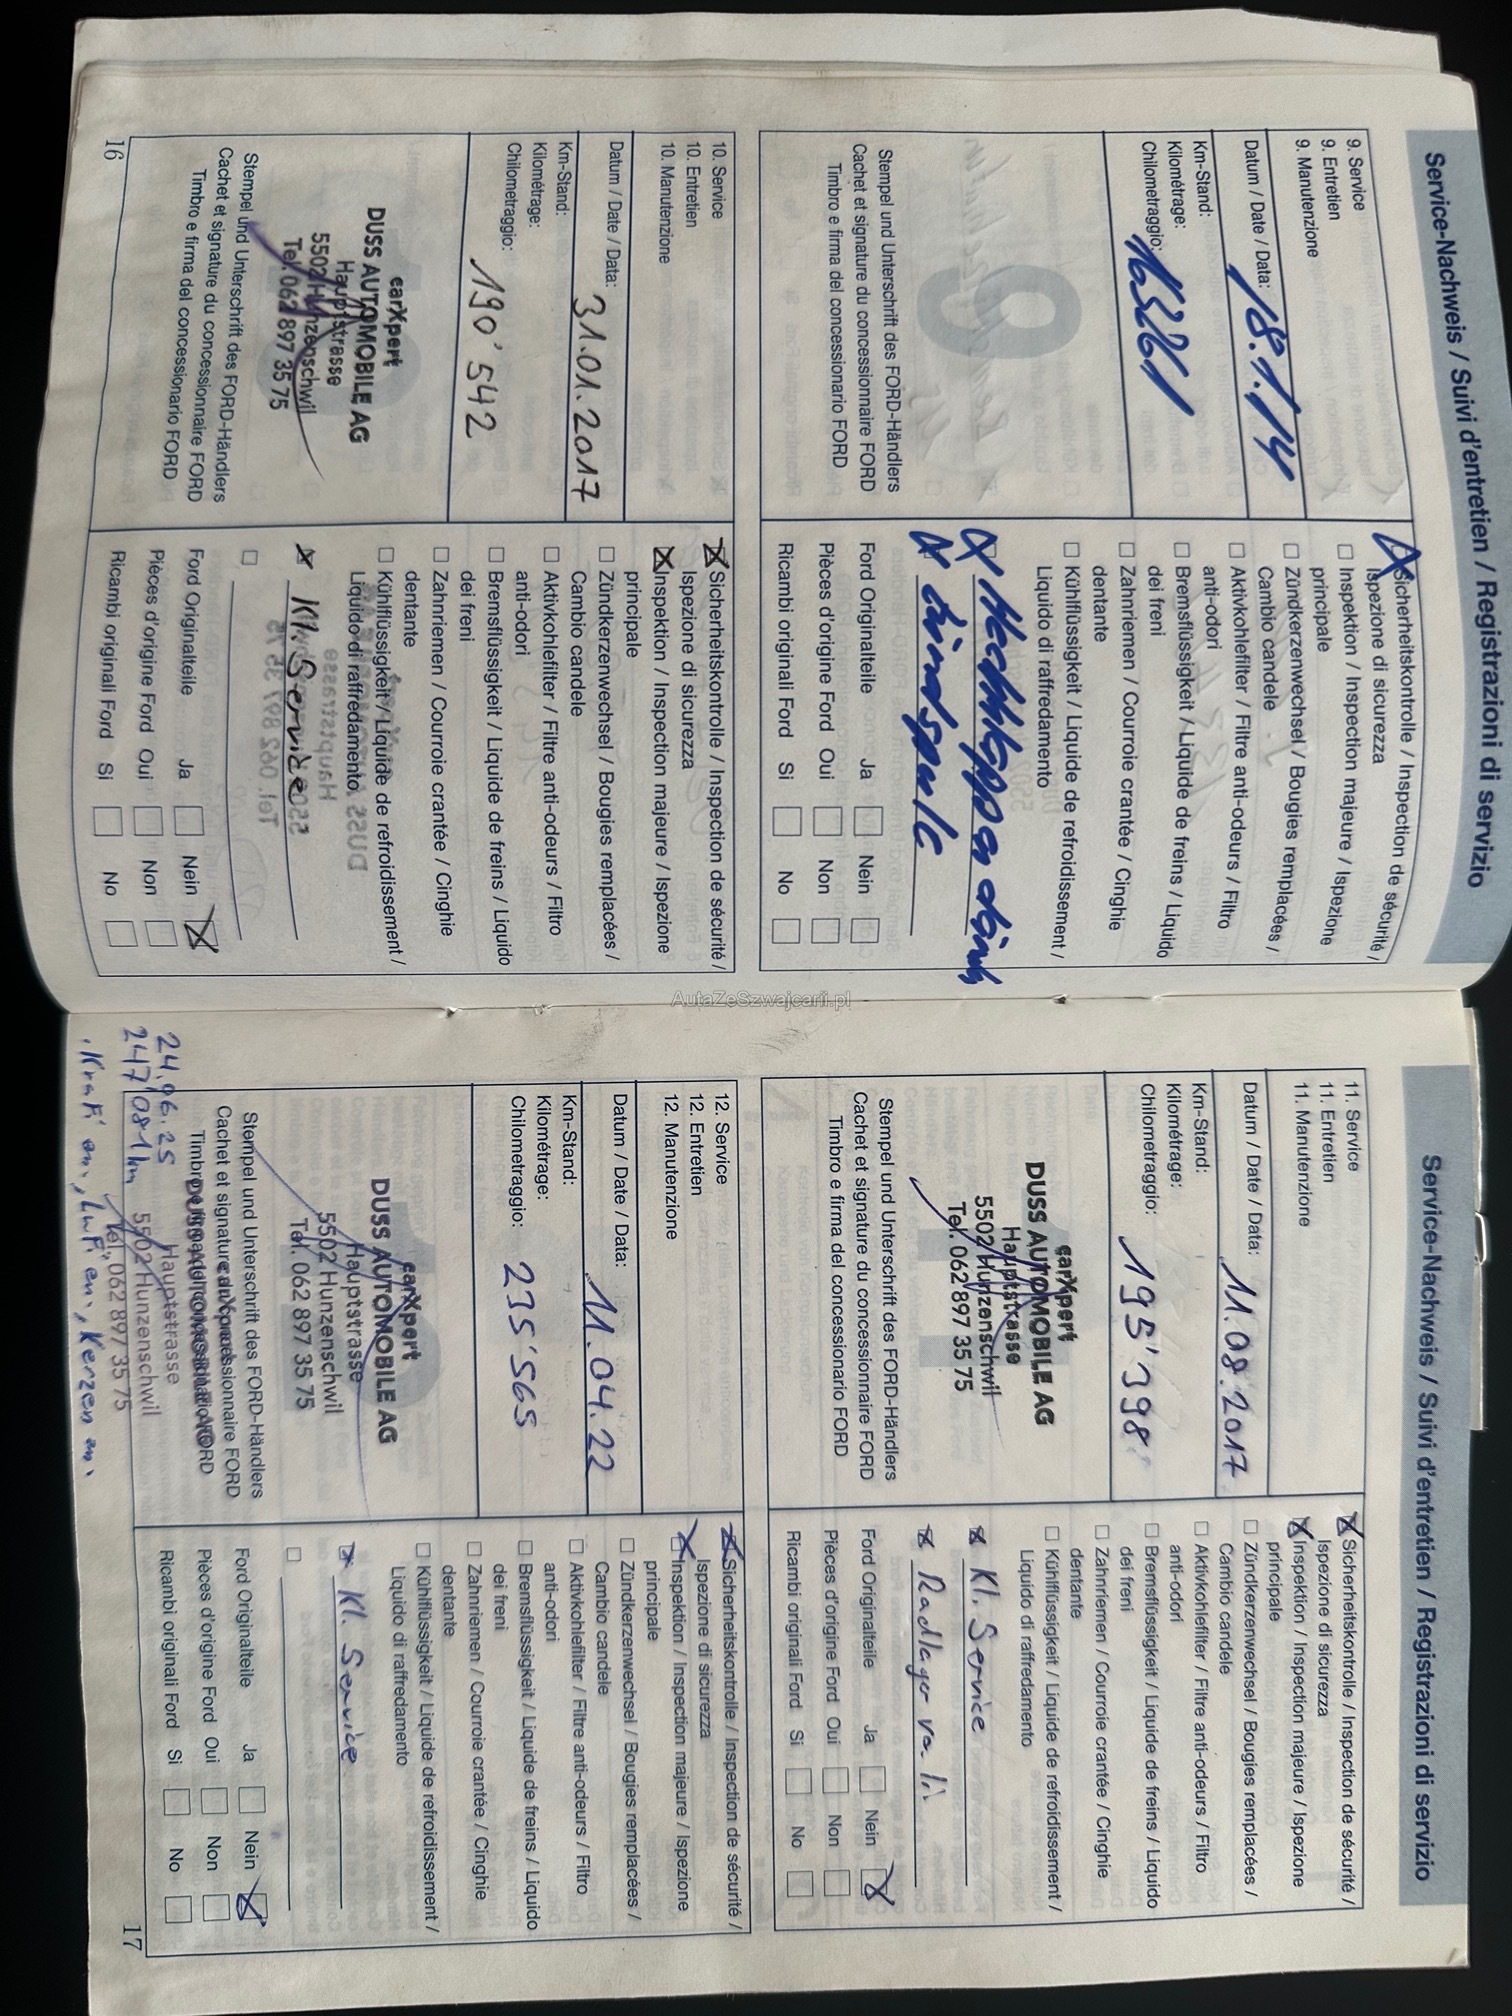 Service-Nachweis / Suivi d'entretien / Registrazioni di servizio
9. Service
9. Entretien
9. Manutenzione
Datum / Date / Data: 18.1.14
Km-Stand:
Kilométrage:
Chilometraggio: 163261
9
Stempel und Unterschrift des FORD-Händlers
Cachet et signature du concessionnaire FORD
Timbro e firma del concessionario FORD
Sicherheitskontrolle / Inspection de sécurité /
Ispezione di sicurezza
Inspektion / Inspection majeure / Ispezione
principale
Zündkerzenwechsel / Bougies remplacées /
Cambio candele
Aktivkohlefilter / Filtre anti-odeurs / Filtro
anti-odori
Bremsflüssigkeit / Liquide de freins / Liquido
dei freni
Zahnriemen / Courroie crantée / Cinghie
dentante
Kühlflüssigkeit / Liquide de refroidissement /
Liquido di raffredamento
Zündspule
Ford Originalteile Ja Nein
Pièces d'origine Ford Oui Non
Ricambi originali Ford Si No
10. Service
10. Entretien
10. Manutenzione
Datum / Date / Data: 31.01.2017
Km-Stand:
Kilométrage:
Chilometraggio: 190'542
carXpert
DUSS AUTOMOBILE AG
Hauptstrasse
5502 Hunzenschwil
Tel. 062 897 35 75
Stempel und Unterschrift des FORD-Händlers
Cachet et signature du concessionnaire FORD
Timbro e firma del concessionario FORD
16
Sicherheitskontrolle / Inspection de sécurité /
Ispezione di sicurezza
Inspektion / Inspection majeure / Ispezione
principale
Zündkerzenwechsel / Bougies remplacées /
Cambio candele
Aktivkohlefilter / Filtre anti-odeurs / Filtro
anti-odori
Bremsflüssigkeit / Liquide de freins / Liquido
dei freni
Zahnriemen / Courroie crantée / Cinghie
dentante
Kühlflüssigkeit / Liquide de refroidissement /
Liquido di raffredamento
Kl. Service
Ford Originalteile Ja Nein
Pièces d'origine Ford Oui Non
Ricambi originali Ford Si No
AutaZeSzwajcarii.pl
Service-Nachweis / Suivi d'entretien / Registrazioni di servizio
11. Service
11. Entretien
11. Manutenzione
Datum / Date / Data: 11.08.2017
Km-Stand:
Kilométrage:
Chilometraggio: 195'398
carXpert
DUSS AUTOMOBILE AG
Hauptstrasse
5502 Hunzenschwil
Tel. 062 897 35 75
Stempel und Unterschrift des FORD-Händlers
Cachet et signature du concessionnaire FORD
Timbro e firma del concessionario FORD
Sicherheitskontrolle / Inspection de sécurité /
Ispezione di sicurezza
Inspektion / Inspection majeure / Ispezione
principale
Zündkerzenwechsel / Bougies remplacées /
Cambio candele
Aktivkohlefilter / Filtre anti-odeurs / Filtro
anti-odori
Bremsflüssigkeit / Liquide de freins / Liquido
dei freni
Zahnriemen / Courroie crantée / Cinghie
dentante
Kühlflüssigkeit / Liquide de refroidissement /
Liquido di raffredamento
Kl. Service
Radlager vo. li.
Ford Originalteile Ja Nein
Pièces d'origine Ford Oui Non
Ricambi originali Ford Si No
12. Service
12. Entretien
12. Manutenzione
Datum / Date / Data: 11.04.22
Km-Stand:
Kilométrage:
Chilometraggio: 235'565
carXpert
DUSS AUTOMOBILE AG
Hauptstrasse
5502 Hunzenschwil
Tel. 062 897 35 75
Stempel und Unterschrift des FORD-Händlers
Cachet et signature du concessionnaire FORD
Hauptstrasse
5502 Hunzenschwil
Tel. 062 897 35 75
24.06.25
247'081 km
Sicherheitskontrolle / Inspection de sécurité /
Ispezione di sicurezza
Inspektion / Inspection majeure / Ispezione
principale
Zündkerzenwechsel / Bougies remplacées /
Cambio candele
Aktivkohlefilter / Filtre anti-odeurs / Filtro
anti-odori
Bremsflüssigkeit / Liquide de freins / Liquido
dei freni
Zahnriemen / Courroie crantée / Cinghie
dentante
Kühlflüssigkeit / Liquide de refroidissement /
Liquido di raffredamento
Kl. Service
Ford Originalteile Ja Nein
Pièces d'origine Ford Oui Non
Ricambi originali Ford Si No
17